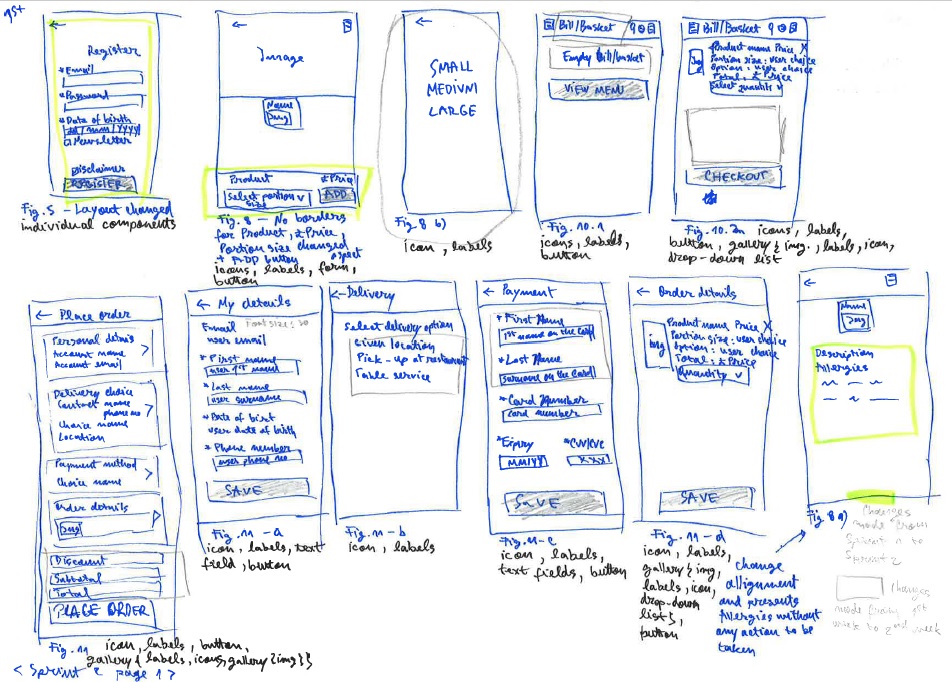 Register
*Email
*Password
*Date of birth
dd/mm/yyyy
Newsletter
Disclaimer
REGISTER
Fig. 5 - Layout changed
individual components
Image
Name
Img
Product £Price
Select portion v ADD
size
Fig. 8 - No borders
for Product, £Price,
Portion size changed
+ ADD button aspect
icons, labels, form,
button
SMALL
MEDIUM
LARGE
Fig 8 b)
icon, labels
Bill/Basket
Empty Bill/basket
VIEW MENU
Fig. 10.1
icons, labels,
button
Bill/Basket
Product name Price X
Portion size: user choice
Option: user choice
Total: £Price
Select quantity v
CHECKOUT
Fig. 10.2a icons, labels,
button, gallery{img., labels, icon,
drop-down list
Place order
Personal details
Account name
Account email
Delivery choice
Contact name
phone no
Choice name
Location
Payment method
Choice name
Order details
Img
Discount
Subtotal
Total
PLACE ORDER
Fig. 11 icon, labels, button,
gallery{labels, icons, gallery{img}}
< Sprint 2 page 1 >
My details
Email Font size: 30
user email
*First name
user 1st name
*Last name
user surname
*Date of birt
user date of birth
*Phone number
user phone no
SAVE
Fig. 11 - a
icon, labels, text
field, button
Delivery
Select delivery option
Given location
Pick-up at restaurant
Table service
Fig. 11 - b
icon, labels
Payment
*First Name
1st name on the card
*Last Name
Surname on the Card
*Card Number
Card number
*Expiry *CVV/CVC
MM/YY XXX
SAVE
Fig. 11 - c
icon, labels,
text fields, button
Order details
Product name Price X
Img
Portion size: user choice
Option: user choice
Total: £Price
Quantity v
SAVE
Fig. 11 - d
icon, labels,
gallery{img,
labels, icon,
drop-down
list},
button
change
allignment
and presents
Allergies without
any action to be
taken
Name
Img
Description
Allergies
Fig. 8 a)
Changes
made from
Sprint 1 to
Sprint 2
Changes
made from 1st
week to 2nd week